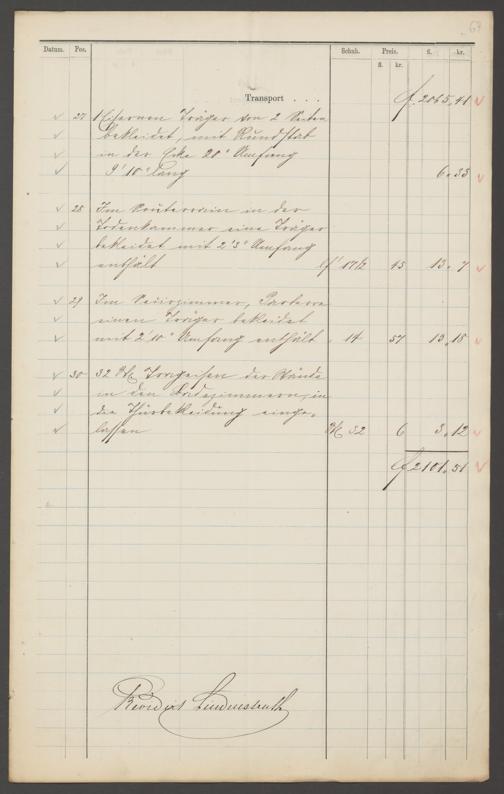 69
Datum. Pos. Schuh. Preis. fl. kr.
fl. kr.
Transport . . . . f. 2065,41
27 1 Eisernen Träger von 2 Seiten
bekleidet, mit Rundstab
in der Ecke 20" Umfang
9' 10" lang 6,33
28 Im Souterrain in der
Todenkammer eine Träger
bekleidet mit 2'3" Umfang
enthält 17 1/2 45 13,7
29 Im Parterre
einen Träger bekleidet
mit 2' 10" Umfang enthält 14 57 13,18
30 32 Stk Trageisen der Wände
in den Badezimmern, in
die Thürbekleidung einge-
lassen Stk 32 6 3,12
f 2101,51
Revidirt